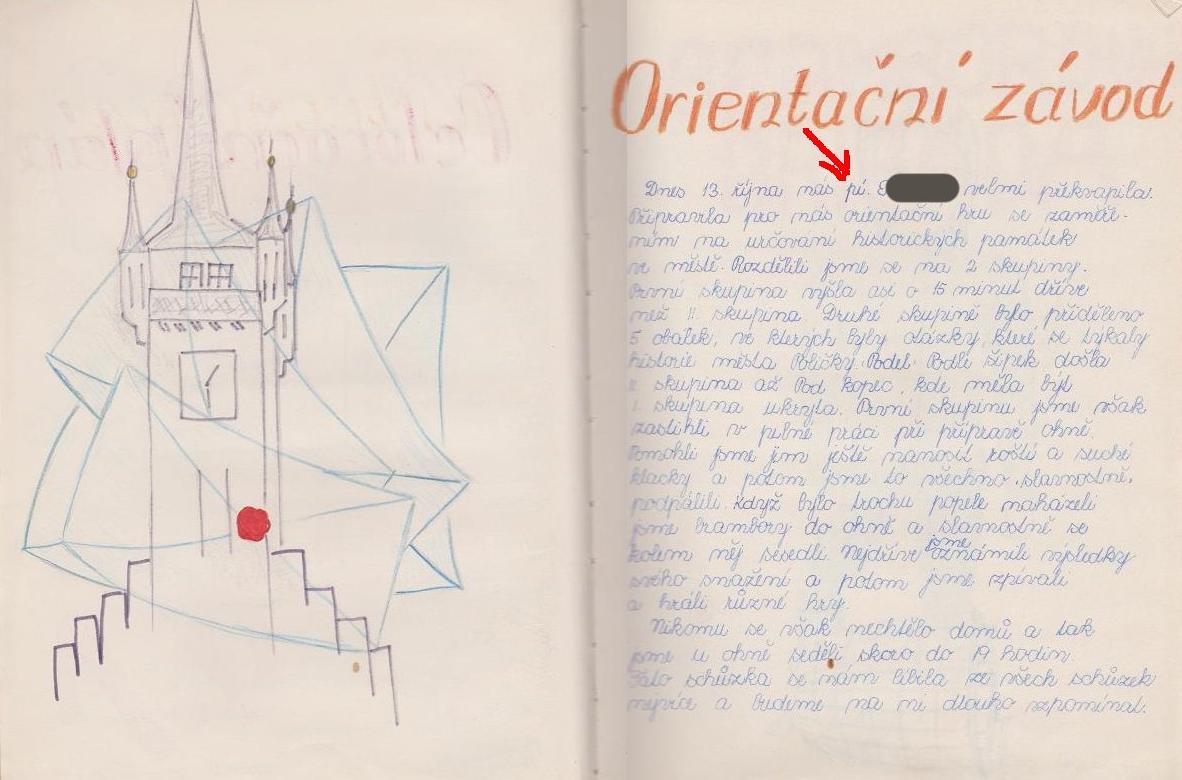 Orientační závod
Dnes 13. října nás pí. velmi překvapila.
Připravila pro nás orientační hru se zaměře-
ním na určovaní historických památek
ve městě. Rozdělili jsme se na 2 skupiny.
První skupina vyšla asi o 15 minut dříve
než II. skupina. Druhé skupině bylo přiděleno
5 obálek, ve kterých byly otázky, které se týkaly
historie města Poličky. Podel. Podle šipek došla
II. skupina až Pod kopec, kde měla být
I. skupina ukryta. První skupinu jsme však
zastihli v pilné práci při přípravě ohně.
Pomohli jsme jim ještě nanosit roští a suché
klacky a potom jsme to všechno "slavnostně"
podpálili. Když bylo trochu popele naházeli
jsme brambory do ohně a slavnostně se
kolem něj sesedli. Nejdříve jsme oznámili výsledky
svého snažení a potom jsme zpívali
a hráli různé hry.
Nikomu se však nechtělo domů a tak
jsme u ohně seděli skoro do 19 hodin.
Tato schůzka se nám líbila ze všech schůzek
nejvíce a budeme na ni dlouho vzpomínat.